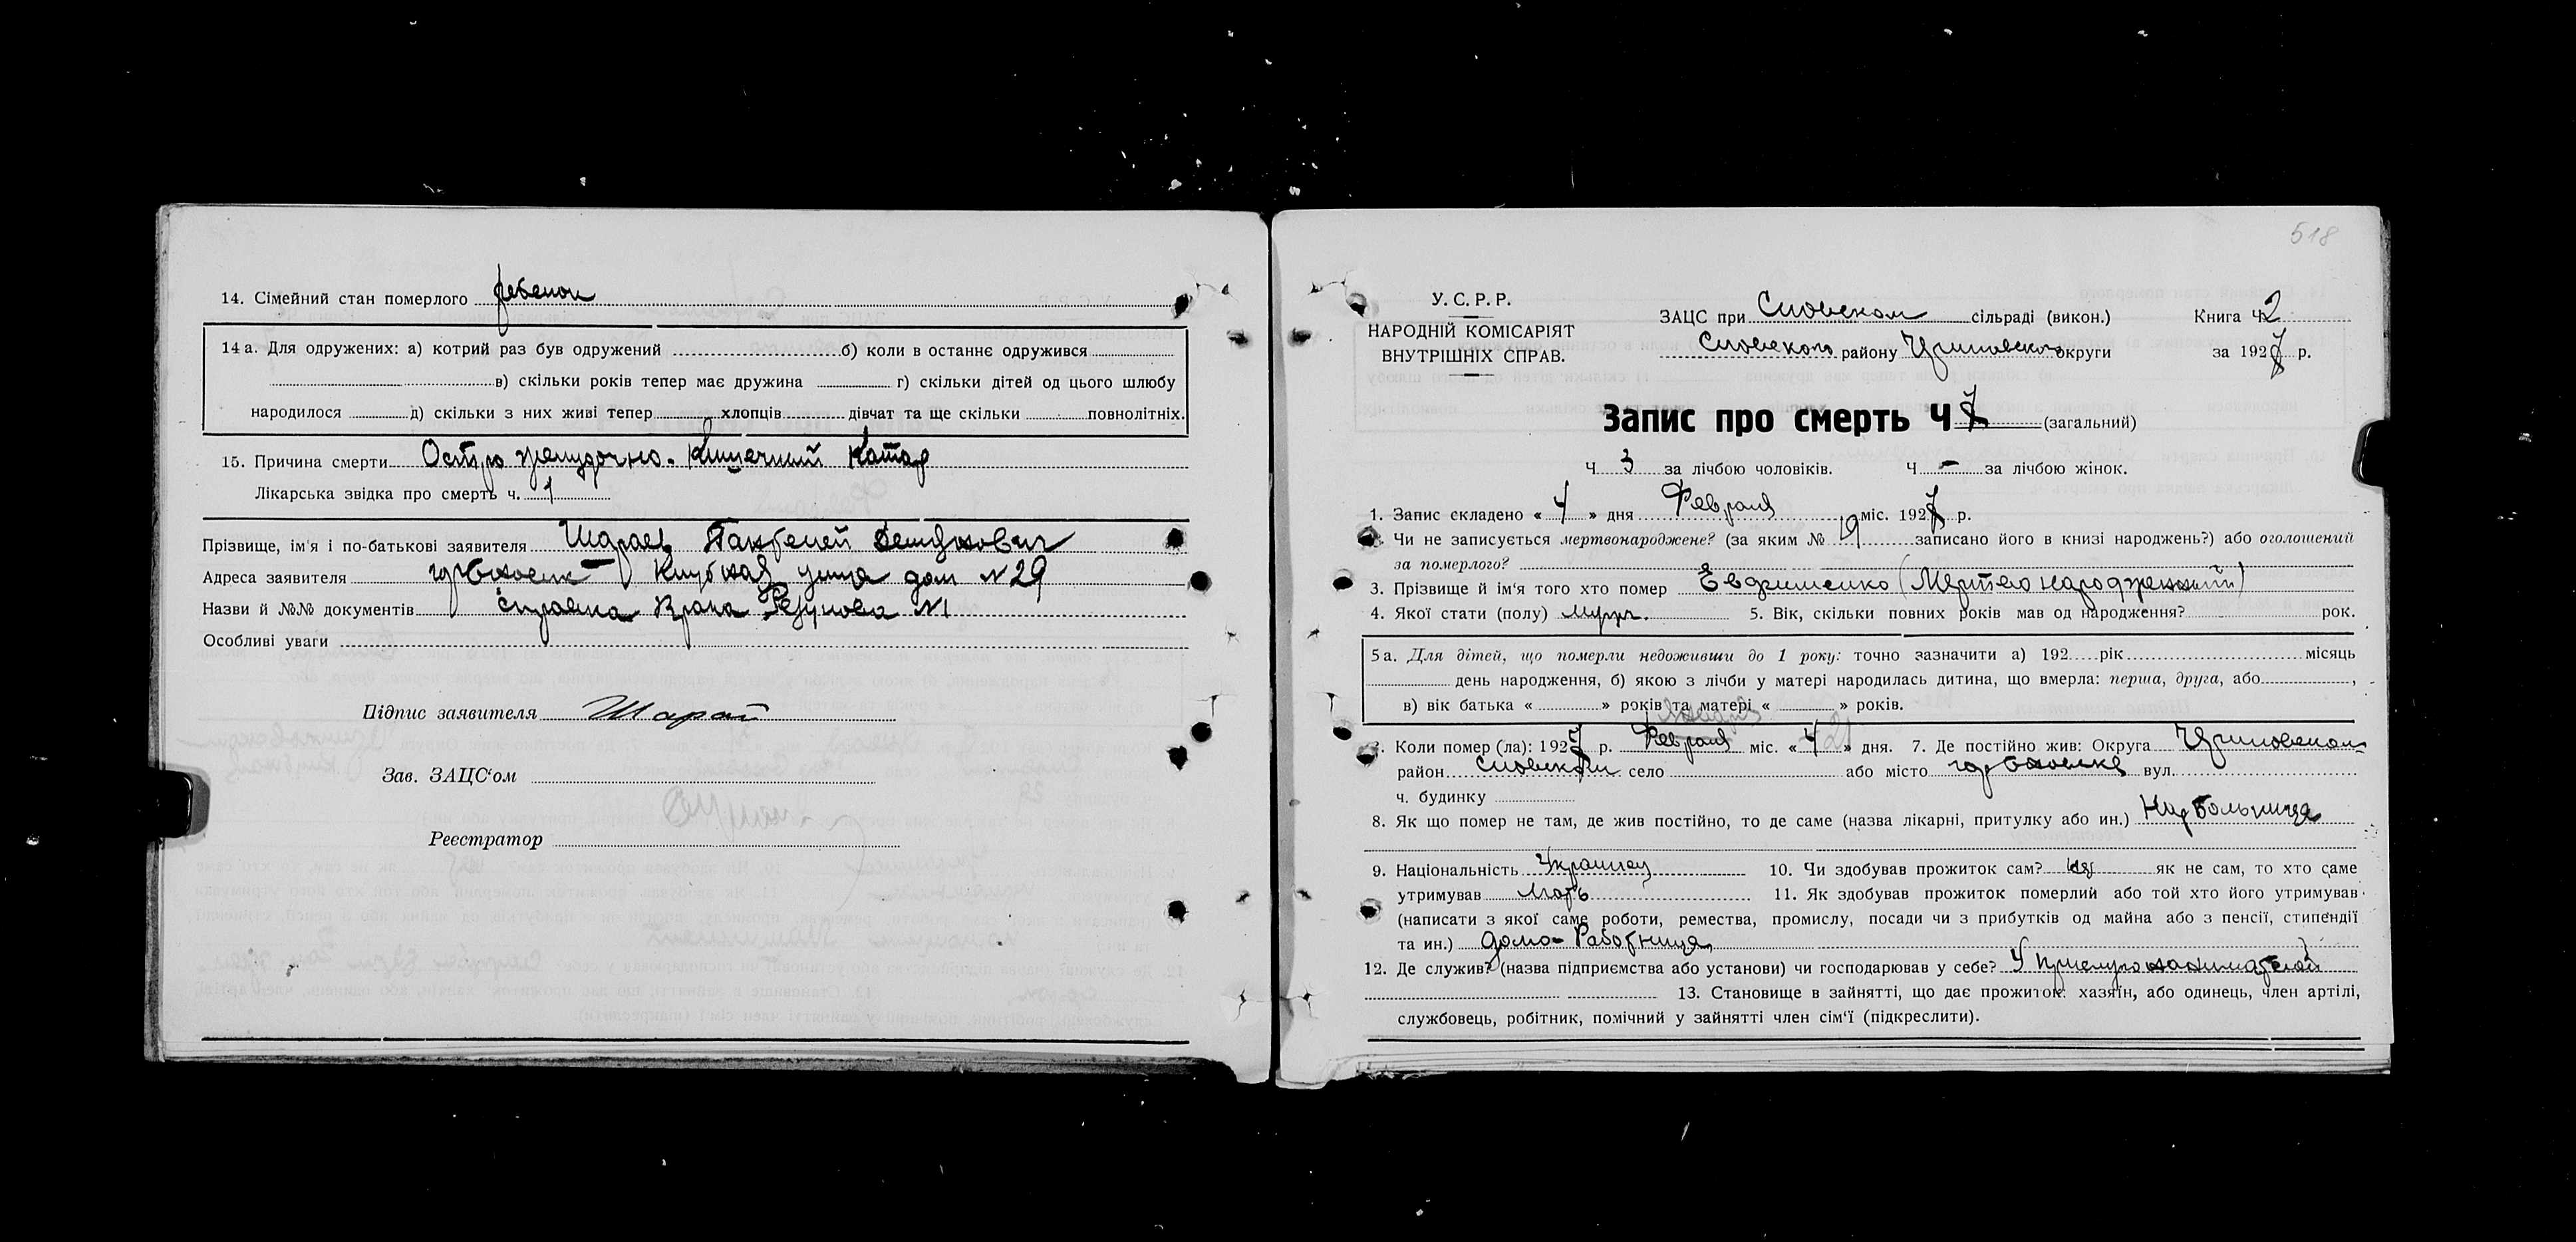 14. Сімейний стан померлого ребенок
14 а. Для одружених: а) котрий раз був одружений б) коли в останнє одружився
в) скільки років тепер має дружина г) скільки дітей од цього шлюбу
народилося д) скільки з них живі тепер хлопців дівчат та ще скільки повнолітніх.
15. Причина смерти Остро желудочно-кишечний катар
Лікарська звідка про смерть ч. 1
Прізвище, ім'я і по-батькові заявителя
Адреса заявителя улица дом №29
Назви й №№ документів справка врача №1
Особливі уваги
Підпис заявителя Шарай
Зав. ЗАЦС'ом
Реєстратор
518
У. С. Р. Р.
НАРОДНІЙ КОМІСАРІЯТ
ВНУТРІШНІХ СПРАВ.
ЗАЦС при Сновском сільраді (викон.) Книга Ч 2
Сновского району округи за 1927 р.
Запис про смерть Ч 7 (загальний)
Ч 3 за лічбою чоловіків. Ч - за лічбою жінок.
1. Запис складено « 4 » дня Февраля міс. 1927 р.
2. Чи не записується мертвонароджене? (за яким № 19 записано його в книзі народжень?) або оголошений
за померлого?
3. Прізвище й ім'я того хто помер Евдименко (Мертвонарожденний)
4. Якої стати (полу) мужч. 5. Вік, скільки повних років мав од народження? рок.
5 а. Для дітей, що померли недоживши до 1 року: точно зазначити а) 192 рік місяць
день народження, б) якою з лічби у матері народилась дитина, що вмерла: перша, друга, або ,
в) вік батька « » років та матері « » років.
6. Коли помер (ла): 1927 р. Февраля міс. « 4 » дня. 7. Де постійно жив: Округа
район Сновский село або місто гор Сновске вул.
ч. будинку
8. Як що помер не там, де жив постійно, то де саме (назва лікарні, притулку або ин.) больница
9. Національність Украинец 10. Чи здобував прожиток сам? як не сам, то хто саме
утримував Мать 11. Як здобував прожиток померлий або той хто його утримував
(написати з якої саме роботи, ремества, промислу, посади чи з прибутків од майна або з пенсії, стипендії
та ин.) дома-Работница
12. Де служив? (назва підприємства або установи) чи господарював у себе?
13. Становище в зайнятті, що дає прожиток: хазяїн, або одинець, член артілі,
службовець, робітник, помічний у зайнятті член сім'ї (підкреслити).